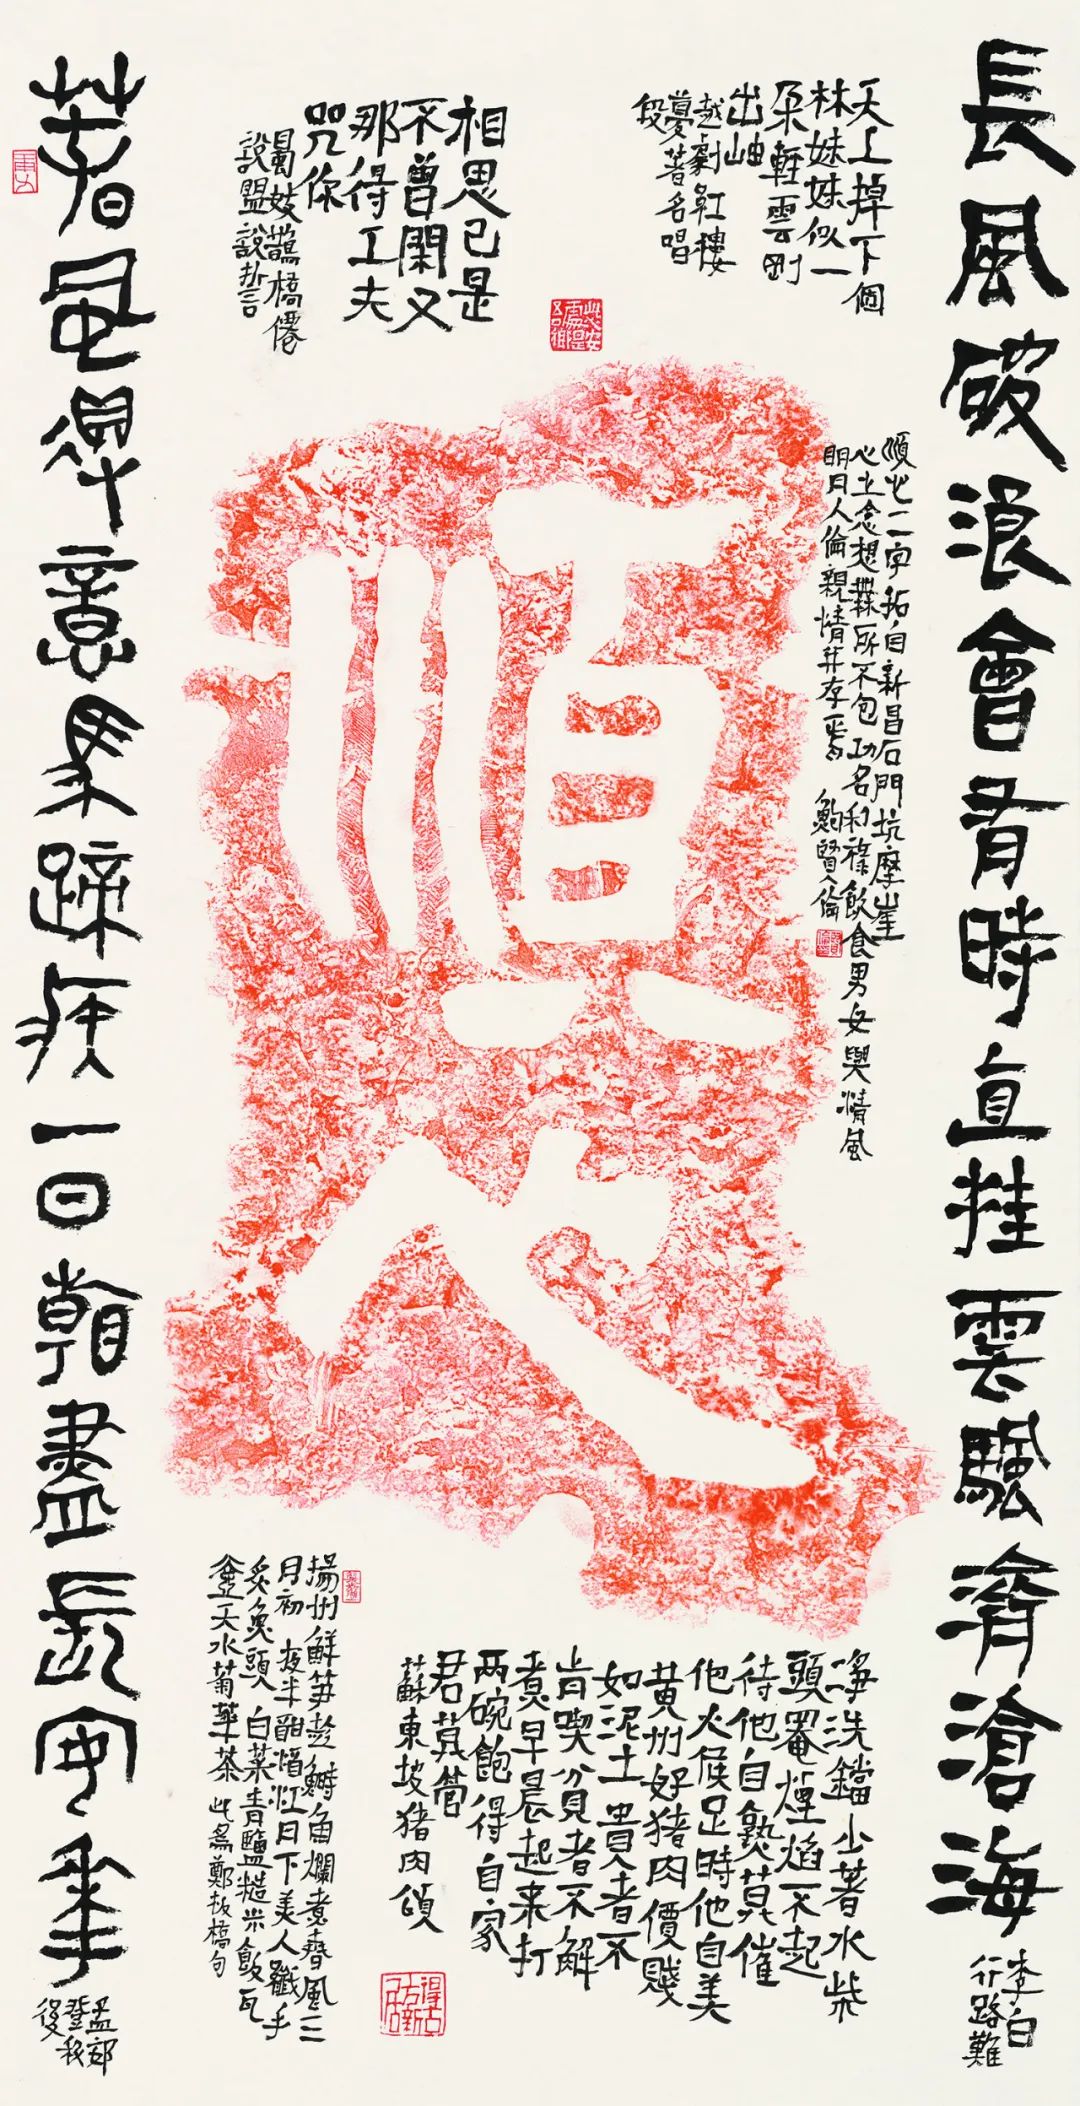 長風破浪會有時直挂雲颿濟滄海
李白
行路難
天上掉下個
林妹妹似一
朵輕雲剛
出岫
越劇紅樓
夢著名唱
段
相思已是
不曾閑又
那得工夫
咒你
蜀妓鵲橋僊
說盟說誓
順心
順心二字拓自新昌石門坑摩崖
心之念想無所不包功名利祿飲食男女與情風
明月人倫親情并存焉 鮑賢倫
淨洗鐺少著水柴
頭罨煙焰不起
待他自熟莫催
他火候足時他自美
黄州好猪肉價賤
如泥土貴者不
肯喫貧者不解
煮早晨起来打
两碗飽得自家
君莫管
蘇東坡猪肉頌
揚州鮮笋趁鰣魚爛煮春風三
月初 夜半酣江月下美人纖手
炙魚頭 白菜青鹽糙米飯瓦
壺天水菊華茶 此為鄭板橋句
春風得意馬蹄疾一日看盡長安華
孟郊
登科
後